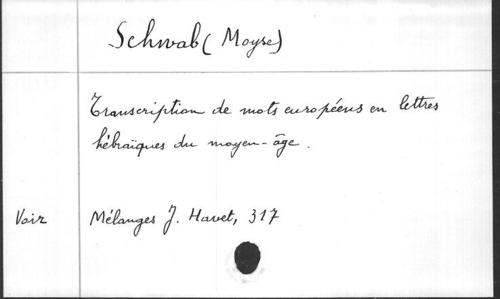 Schwab (Moyse)
Transcription de mots européens en lettres
hébraïques du moyen-âge.
Voir Mélanges J. Havet, 317